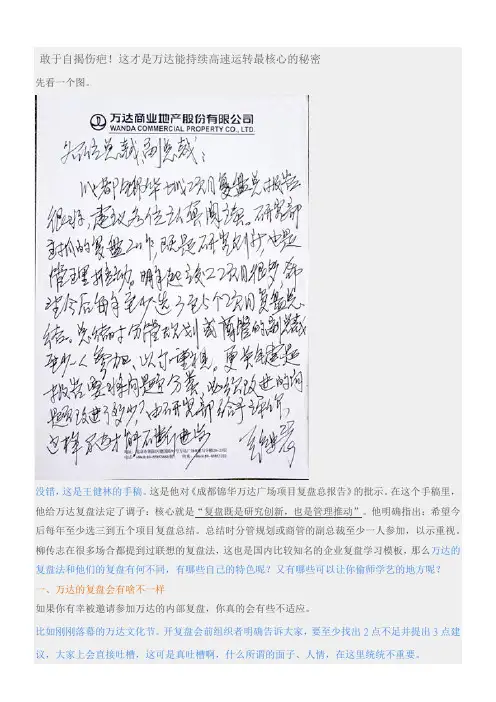 敢于自揭伤疤！这才是万达能持续高速运转最核心的秘密
先看一个图。
万达商业地产股份有限公司
WANDA COMMERCIAL PROPERTY CO., LTD.
各位总裁、副总裁：
成都锦华城项目复盘总报告
很好，建议各位认真阅读。研究部
主抓的复盘工作，既是研究创新，也是
管理推动。明年起
今后每年至少选3至5个项目复盘总
结。总结时分管规划或商管的副总裁
至少1人参加，以示重视。更关键是
报告要将问题分类，必给改进的问
题改进了多少，由研究部给予评价，
这样万达才能不断进步
没错，这是王健林的手稿。这是他对《成都锦华万达广场项目复盘总报告》的批示。在这个手稿里，
他给万达复盘法定了调子：核心就是“复盘既是研究创新，也是管理推动”。他明确指出：希望今
后每年至少选三到五个项目复盘总结。总结时分管规划或商管的副总裁至少一人参加，以示重视。
柳传志在很多场合都提到过联想的复盘法，这也是国内比较知名的企业复盘学习模板，那么万达的
复盘法和他们的复盘有何不同，有哪些自己的特色呢？又有哪些可以让你偷师学艺的地方呢？
一、万达的复盘会有啥不一样
如果你有幸被邀请参加万达的内部复盘，你真的会有些不适应。
比如刚刚落幕的万达文化节。开复盘会前组织者明确告诉大家，要至少找出2点不足并提出3点建
议，大家上会直接吐槽，这可是真吐槽啊，什么所谓的面子、人情，在这里统统不重要。